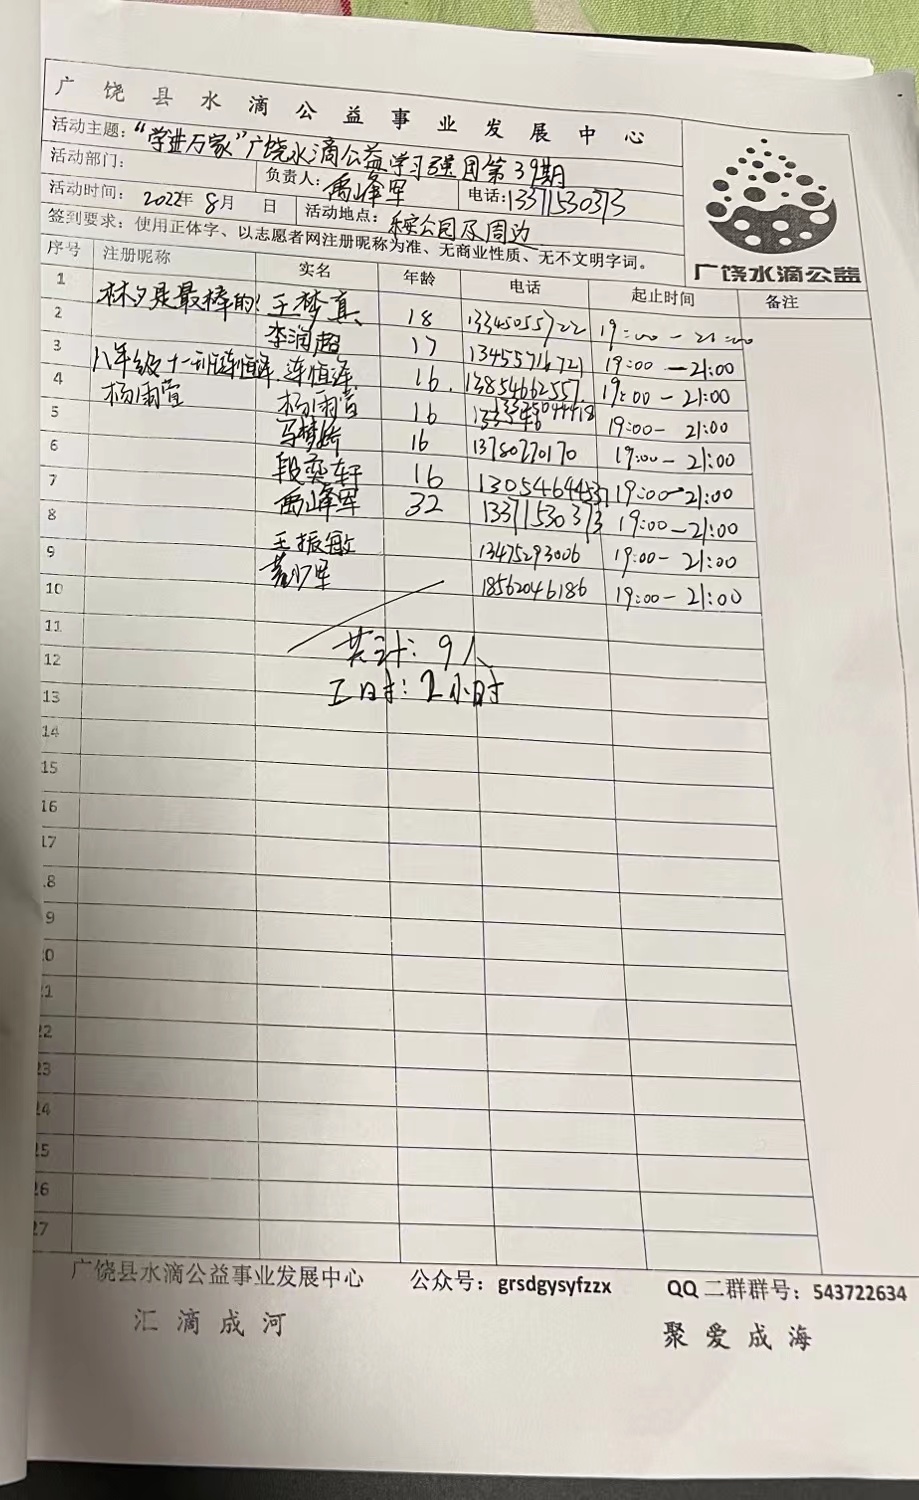 广饶县水滴公益事业发展中心
活动主题：“学进万家”广饶水滴公益学习强团第39期
活动部门： 负责人：禹峰军 电话：13371530373
活动时间：2022年8月 日 活动地点：乐安公园及周边
签到要求：使用正体字、以志愿者网注册昵称为准、无商业性质、无不文明字词。
广饶水滴公益
序号 注册昵称 实名 年龄 电话 起止时间 备注
1 林夕是最棒的！ 王梦真 18 13345055722 19:00-21:00
2 李润超 17 13455716721 19:00-21:00
3 八年级十一班连恒泽 连恒泽 16 13854662557 19:00-21:00
4 杨雨萱 杨雨萱 16 19:00-21:00
5 马梦娇 16 13780770170 19:00-21:00
6 段奕轩 16 13054644537 19:00-21:00
7 禹峰军 32 13371530373 19:00-21:00
8 王振敏 13475293006 19:00-21:00
9 军 18562046186 19:00-21:00
10
11
共计：9人
12
工时：2小时
13
14
15
16
17
18
9
0
1
22
23
24
25
26
27
广饶县水滴公益事业发展中心 公众号：grsdgysyfzzx QQ二群群号：543722634
汇滴成河 聚爱成海